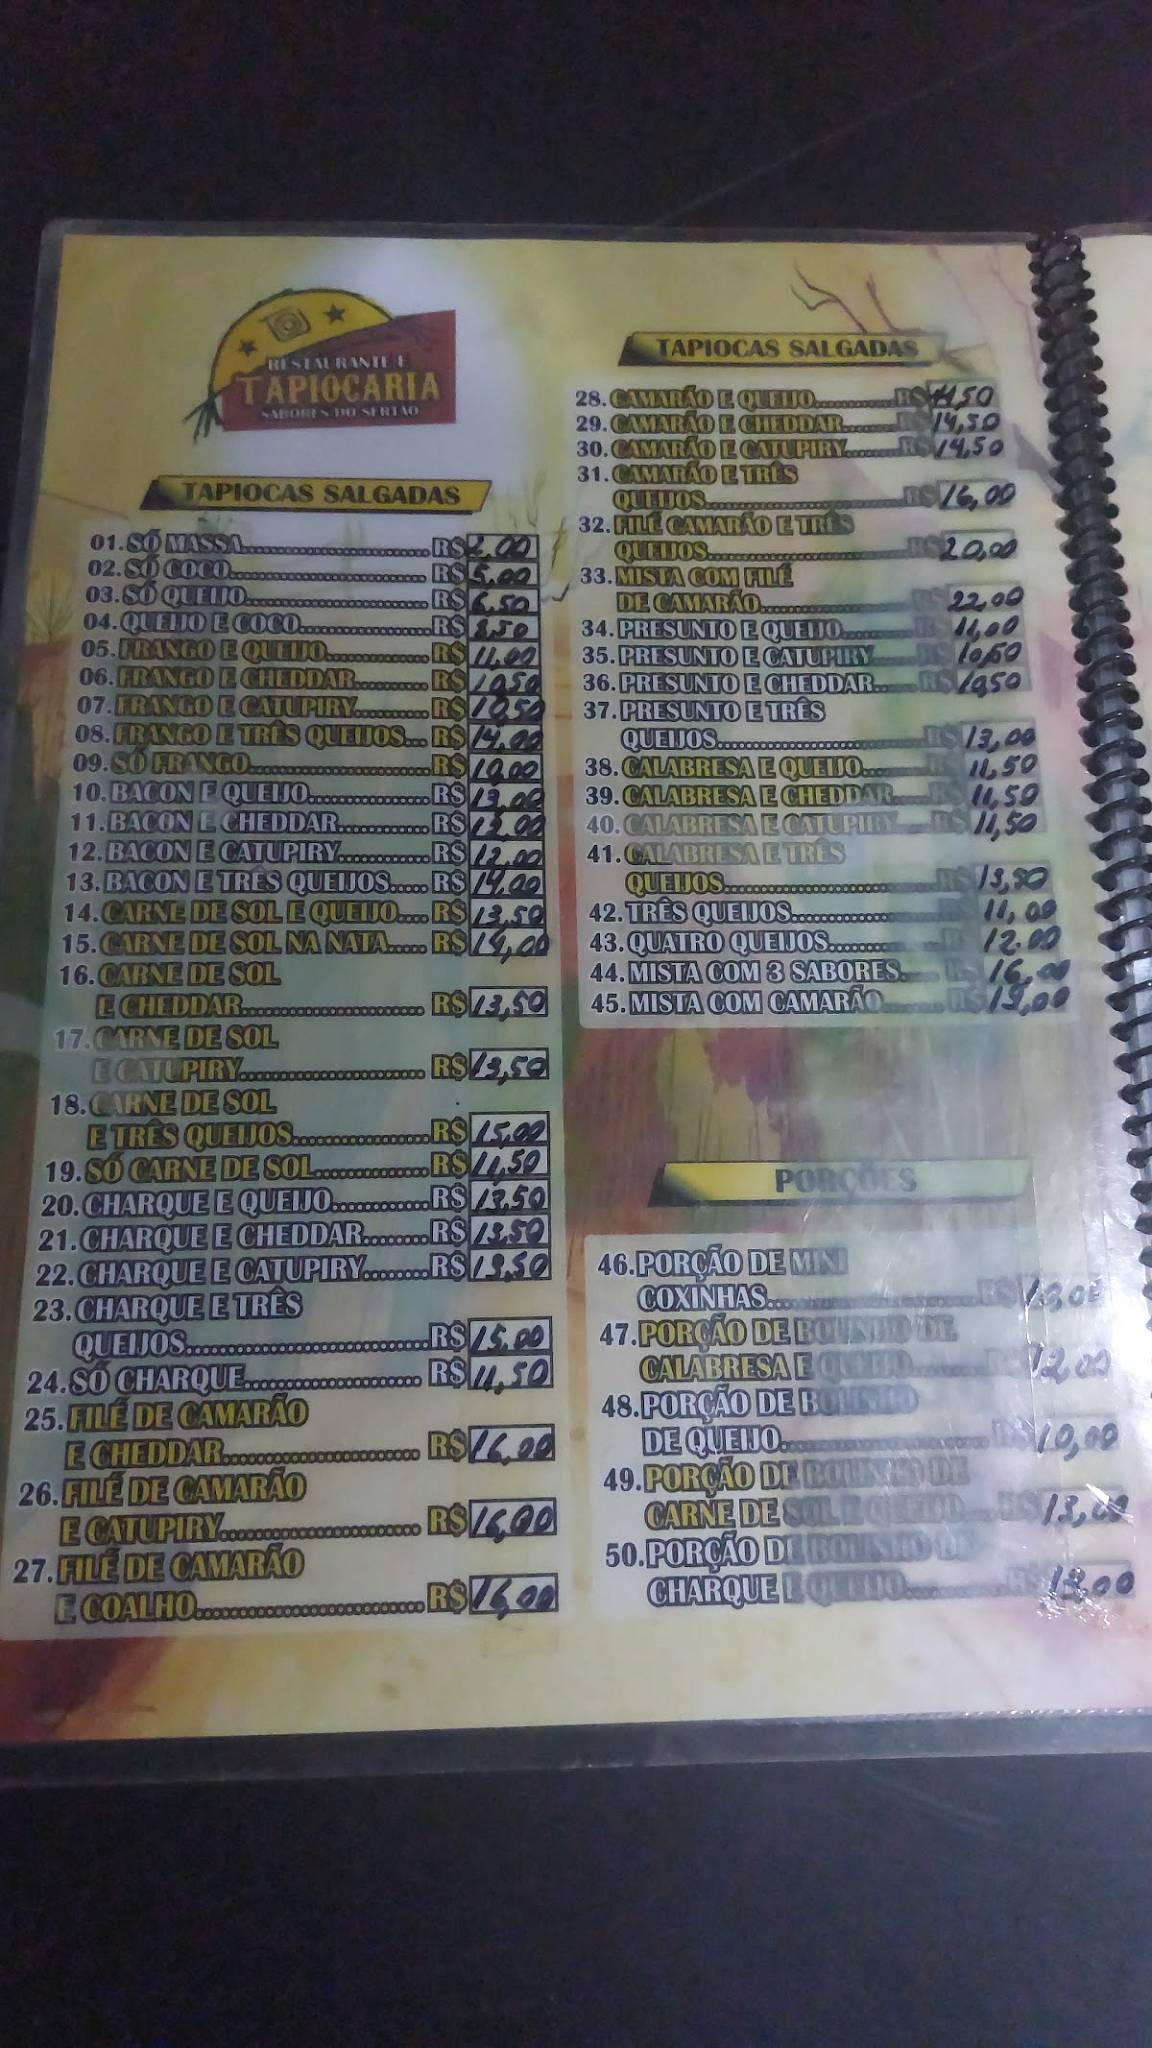 RESTAURANTE E
TAPIOCARIA
SABORES DO SERTÃO
TAPIOCAS SALGADAS
01. SÓ MASSA R$ 2,00
02. SÓ COCO R$ 5,00
03. SÓ QUEIJO R$ 6,50
04. QUEIJO E COCO R$ 8,50
05. FRANGO E QUEIJO R$ 11,00
06. FRANGO E CHEDDAR R$ 10,50
07. FRANGO E CATUPIRY R$ 10,50
08. FRANGO E TRÊS QUEIJOS... R$ 14,00
09. SÓ FRANGO R$ 10,00
10. BACON E QUEIJO R$ 13,00
11. BACON E CHEDDAR R$ 12,00
12. BACON E CATUPIRY R$ 12,00
13. BACON E TRÊS QUEIJOS R$ 14,00
14. CARNE DE SOL E QUEIJO R$ 13,50
15. CARNE DE SOL NA NATA R$ 14,00
16. CARNE DE SOL
E CHEDDAR R$ 13,50
17. CARNE DE SOL
E CATUPIRY R$ 13,50
18. CARNE DE SOL
E TRÊS QUEIJOS R$ 15,00
19. SÓ CARNE DE SOL R$ 11,50
20. CHARQUE E QUEIJO R$ 13,50
21. CHARQUE E CHEDDAR R$ 13,50
22. CHARQUE E CATUPIRY R$ 13,50
23. CHARQUE E TRÊS
QUEIJOS R$ 15,00
24. SÓ CHARQUE R$ 11,50
25. FILÉ DE CAMARÃO
E CHEDDAR R$ 16,00
26. FILÉ DE CAMARÃO
E CATUPIRY R$ 16,00
27. FILÉ DE CAMARÃO
E COALHO R$ 16,00
TAPIOCAS SALGADAS
28. CAMARÃO E QUEIJO R$ 14,50
29. CAMARÃO E CHEDDAR R$ 14,50
30. CAMARÃO E CATUPIRY R$ 14,50
31. CAMARÃO E TRÊS
QUEIJOS R$ 16,00
32. FILÉ CAMARÃO E TRÊS
QUEIJOS R$ 20,00
33. MISTA COM FILÉ
DE CAMARÃO R$ 22,00
34. PRESUNTO E QUEIJO R$ 11,00
35. PRESUNTO E CATUPIRY R$ 10,50
36. PRESUNTO E CHEDDAR R$ 10,50
37. PRESUNTO E TRÊS
QUEIJOS R$ 13,00
38. CALABRESA E QUEIJO R$ 11,50
39. CALABRESA E CHEDDAR R$ 11,50
40. CALABRESA E CATUPIRY R$ 11,50
41. CALABRESA E TRÊS
QUEIJOS R$ 13,50
42. TRÊS QUEIJOS R$ 11,00
43. QUATRO QUEIJOS R$ 12,00
44. MISTA COM 3 SABORES R$ 16,00
45. MISTA COM CAMARÃO R$ 19,00
PORÇÕES
46. PORÇÃO DE MINI
COXINHAS R$
47. PORÇÃO DE BOLINHO DE
CALABRESA E QUEIJO R$ 12,00
48. PORÇÃO DE BOLINHO
DE QUEIJO R$ 10,00
49. PORÇÃO DE BOLINHO DE
CARNE DE SOL E QUEIJO R$ 13,00
50. PORÇÃO DE BOLINHO DE
CHARQUE E QUEIJO R$ 13,00